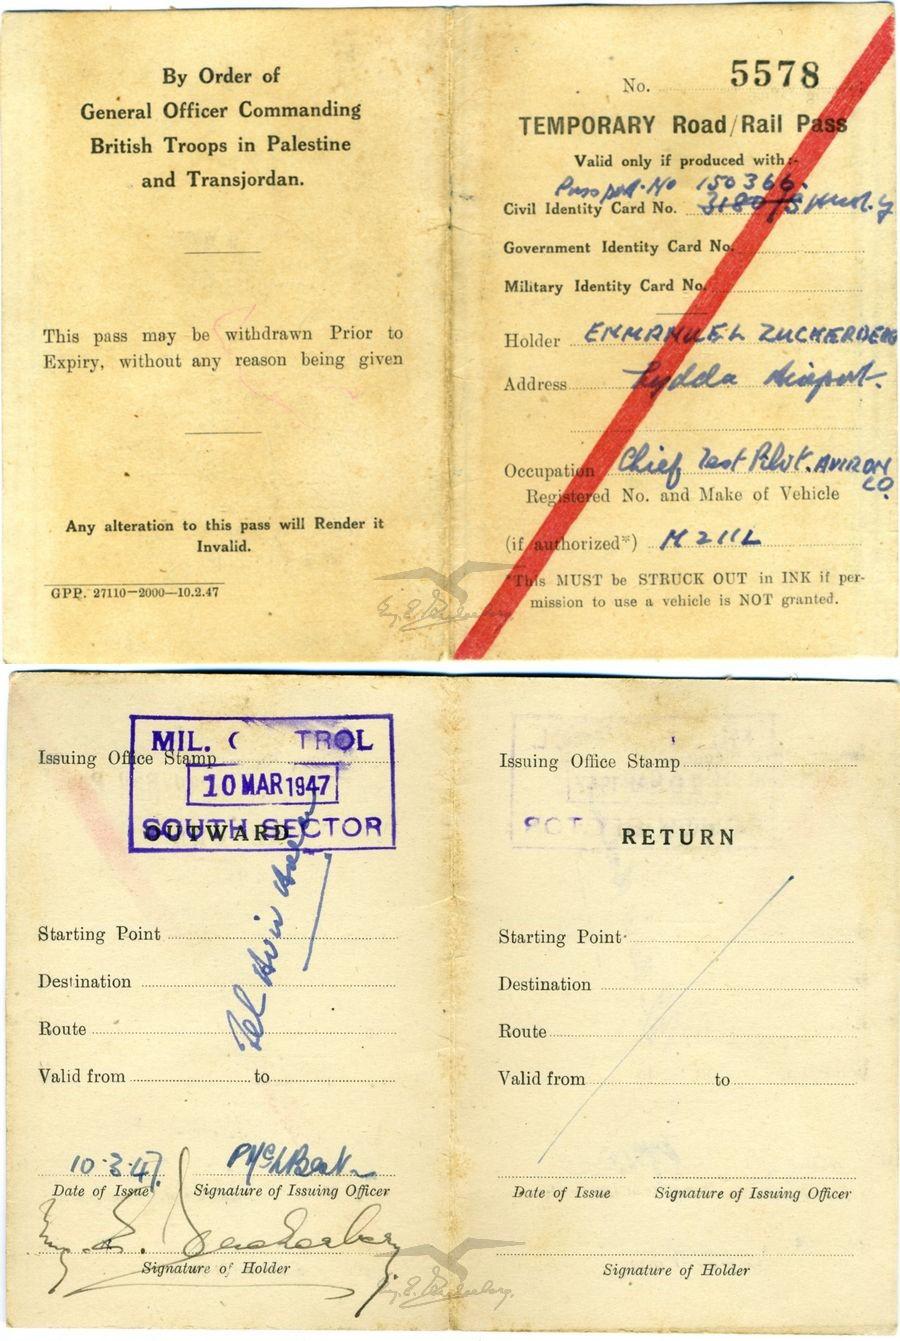 By Order of
General Officer Commanding
British Troops in Palestine
and Transjordan.
This pass may be withdrawn Prior to
Expiry, without any reason being given
Any alteration to this pass will Render it
Invalid.
GPP. 27110—2000—10.2.47
No. 5578
TEMPORARY Road/Rail Pass
Valid only if produced with:-
Passport No 150366.
Civil Identity Card No.
Government Identity Card No.
Military Identity Card No.
Holder EMMANUEL ZUCKERBERG
Address Lydda Airport.
Occupation Chief Test Pilot. AVIRON
CO.
Registered No. and Make of Vehicle
(if authorized*) M 211L
*This MUST be STRUCK OUT in INK if per-
mission to use a vehicle is NOT granted.
MIL. C TROL
Issuing Office Stamp
10 MAR 1947
SOUTH SECTOR
OUTWARD
Tel Aviv
Starting Point
Destination
Route
Valid from to
10-3-47.
Date of Issue Signature of Issuing Officer
E. Zuckerberg
Signature of Holder
Issuing Office Stamp
RETURN
Starting Point
Destination
Route
Valid from to
Date of Issue Signature of Issuing Officer
Signature of Holder